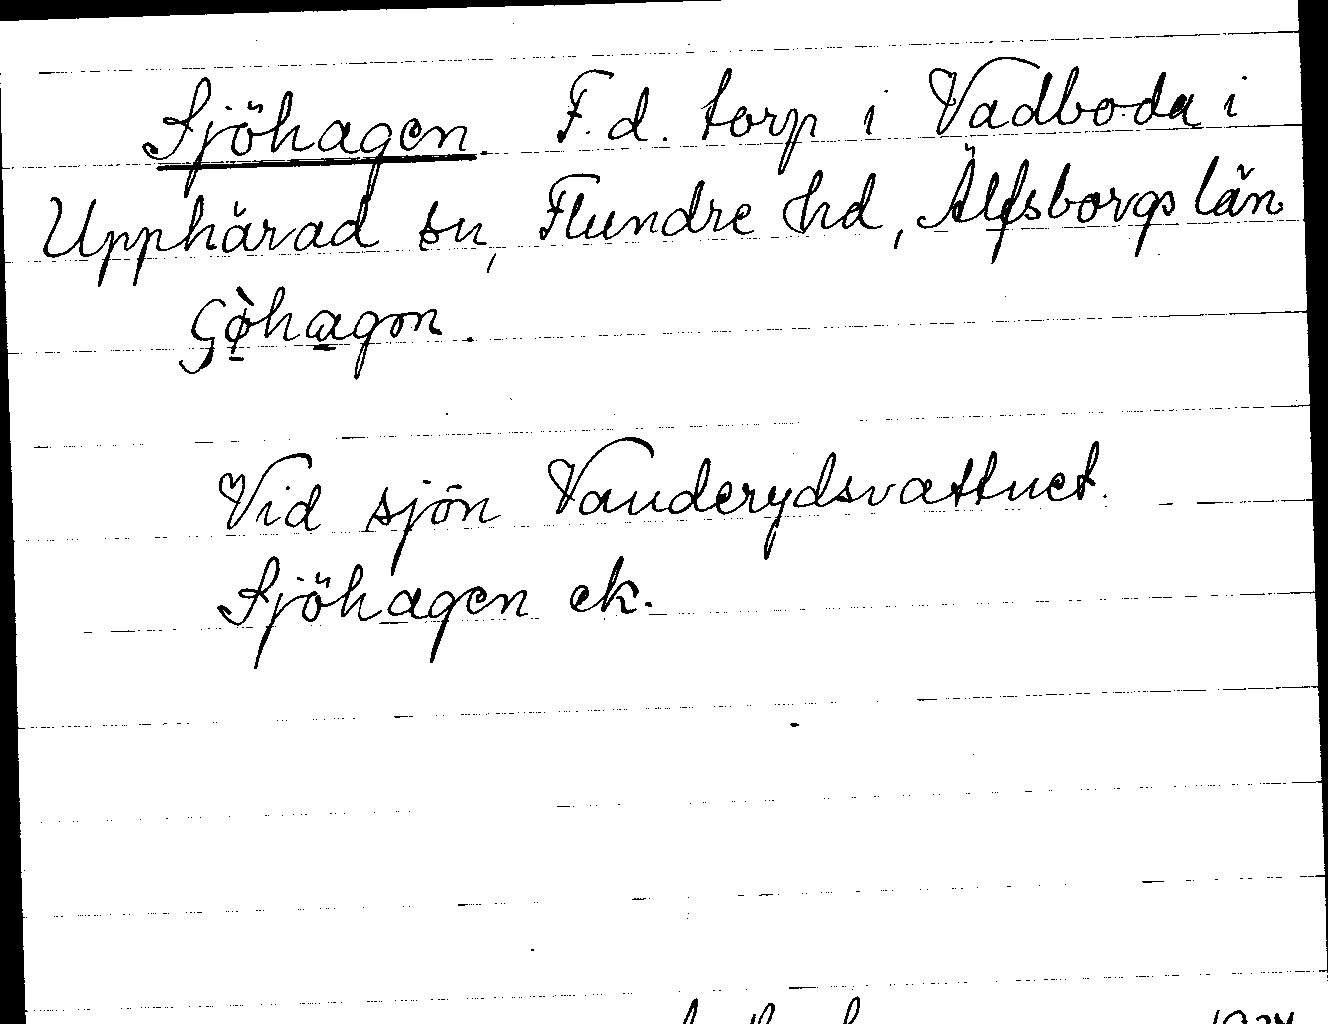 Sjöhagen. F.d. torp i Vadboda i
Upphärad sn, Flundre hd, Älfsborgs län
Vid sjön Vanderydsvattnet.
Sjöhagen ek.